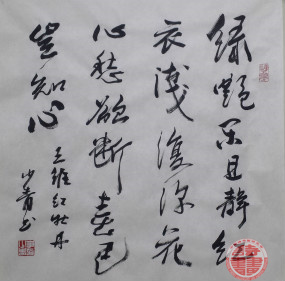 绿艳闲且静红
衣浅复深花
心愁欲断春色
岂知心
王维红牡丹
少青书